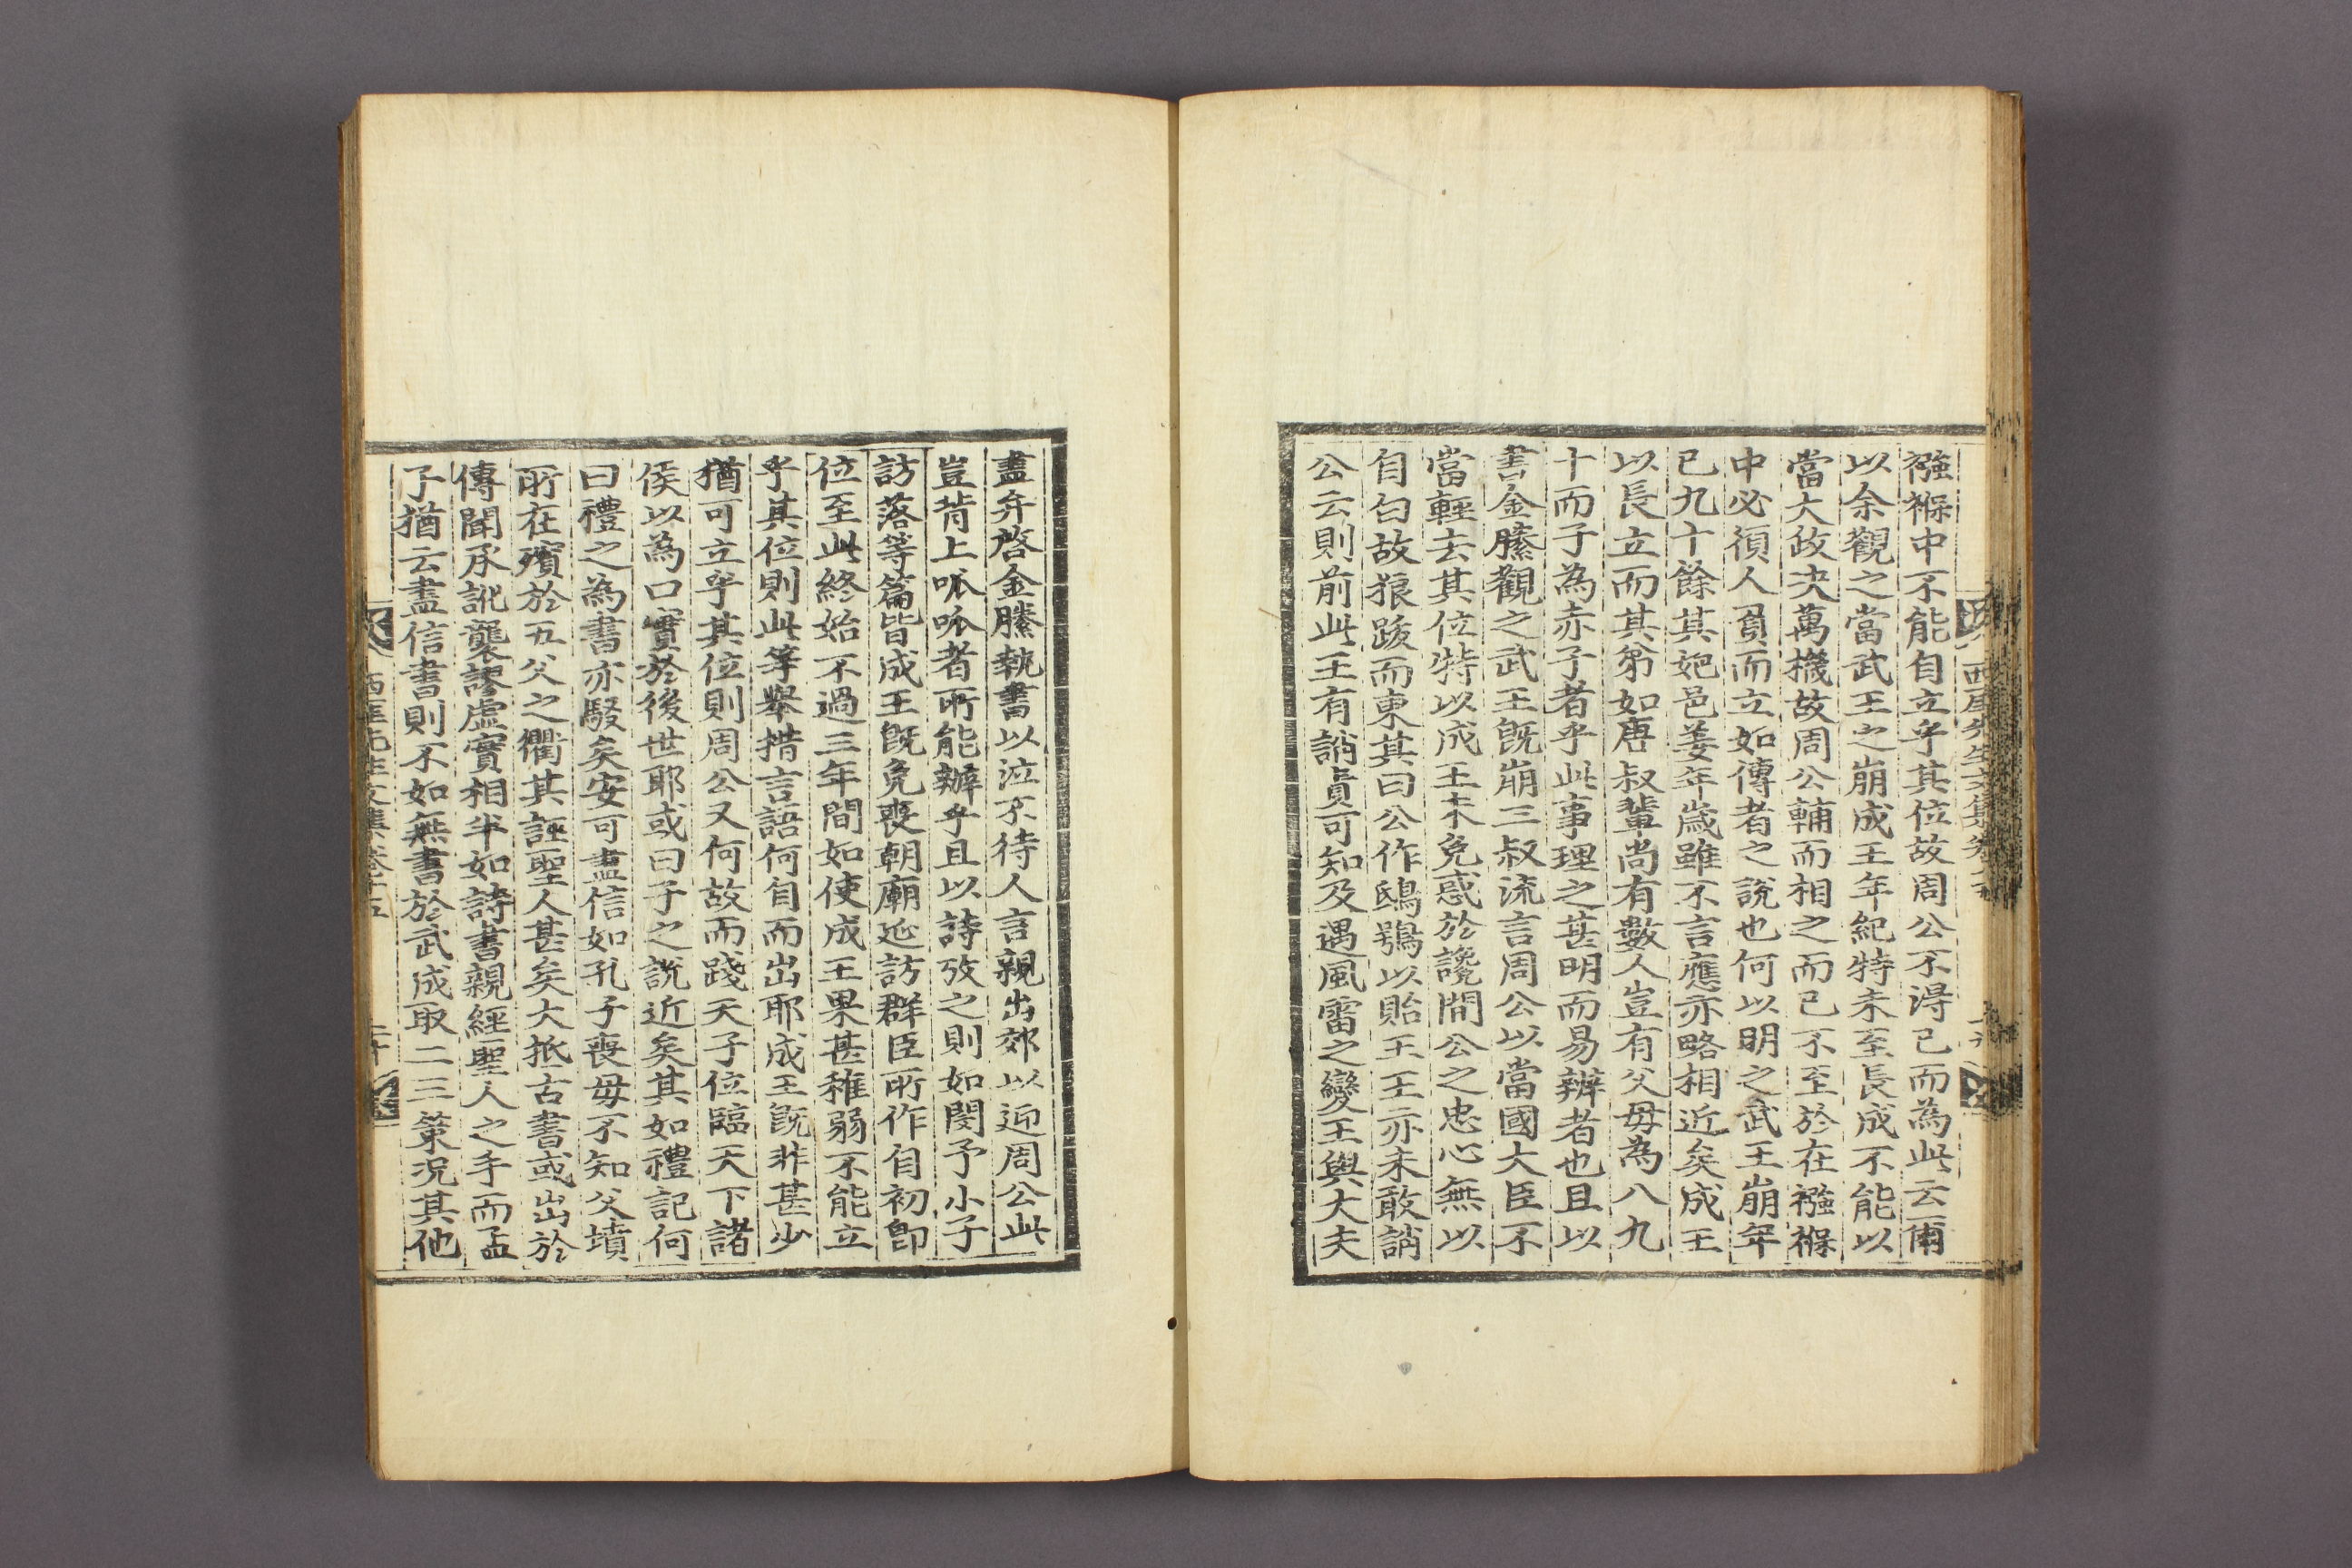 西厓先生文集卷十五
襁褓中不能自立乎其位故周公不得已而為此云爾
以余觀之當武王之崩成王年紀特未至長成不能以
當大政决萬機故周公輔而相之而已不至於在襁褓
中必須人負而立如傳者之說也何以明之武王崩年
已九十餘其妃邑姜年歲雖不言應亦略相近矣成王
以長立而其弟如唐叔輩尚有數人豈有父母為八九
十而子為赤子者乎此事理之甚明而易辨者也且以
書金縢觀之武王旣崩三叔流言周公以當國大臣不
當輕去其位特以成王未免惑於讒間公之忠心無以
自白故狼跋而東其曰公作鴟鴞以貽王王亦未敢誚
公云則前此王有誚責可知及遇風雷之變王與大夫
盡弁啓金縢執書以泣不待人言親出郊以迎周公此
豈背上呱呱者所能辦乎且以詩攷之則如閔予小子
訪落等篇皆成王旣免喪朝廟延訪群臣所作自初卽
位至此終始不過三年間如使成王果甚稚弱不能立
乎其位則此等擧措言語何自而出耶成王旣非甚少
猶可立乎其位則周公又何故而踐天子位臨天下諸
侯以為口實於後世耶或曰子之說近矣其如禮記何
曰禮之為書亦駁矣安可盡信如孔子喪母不知父墳
所在殯於五父之衢其誣聖人甚矣大抵古書或出於
傳聞承訛襲謬虛實相半如詩書親經聖人之手而孟
子猶云盡信書則不如無書於武成取二三策況其他
西厓先生文集卷十五
二十